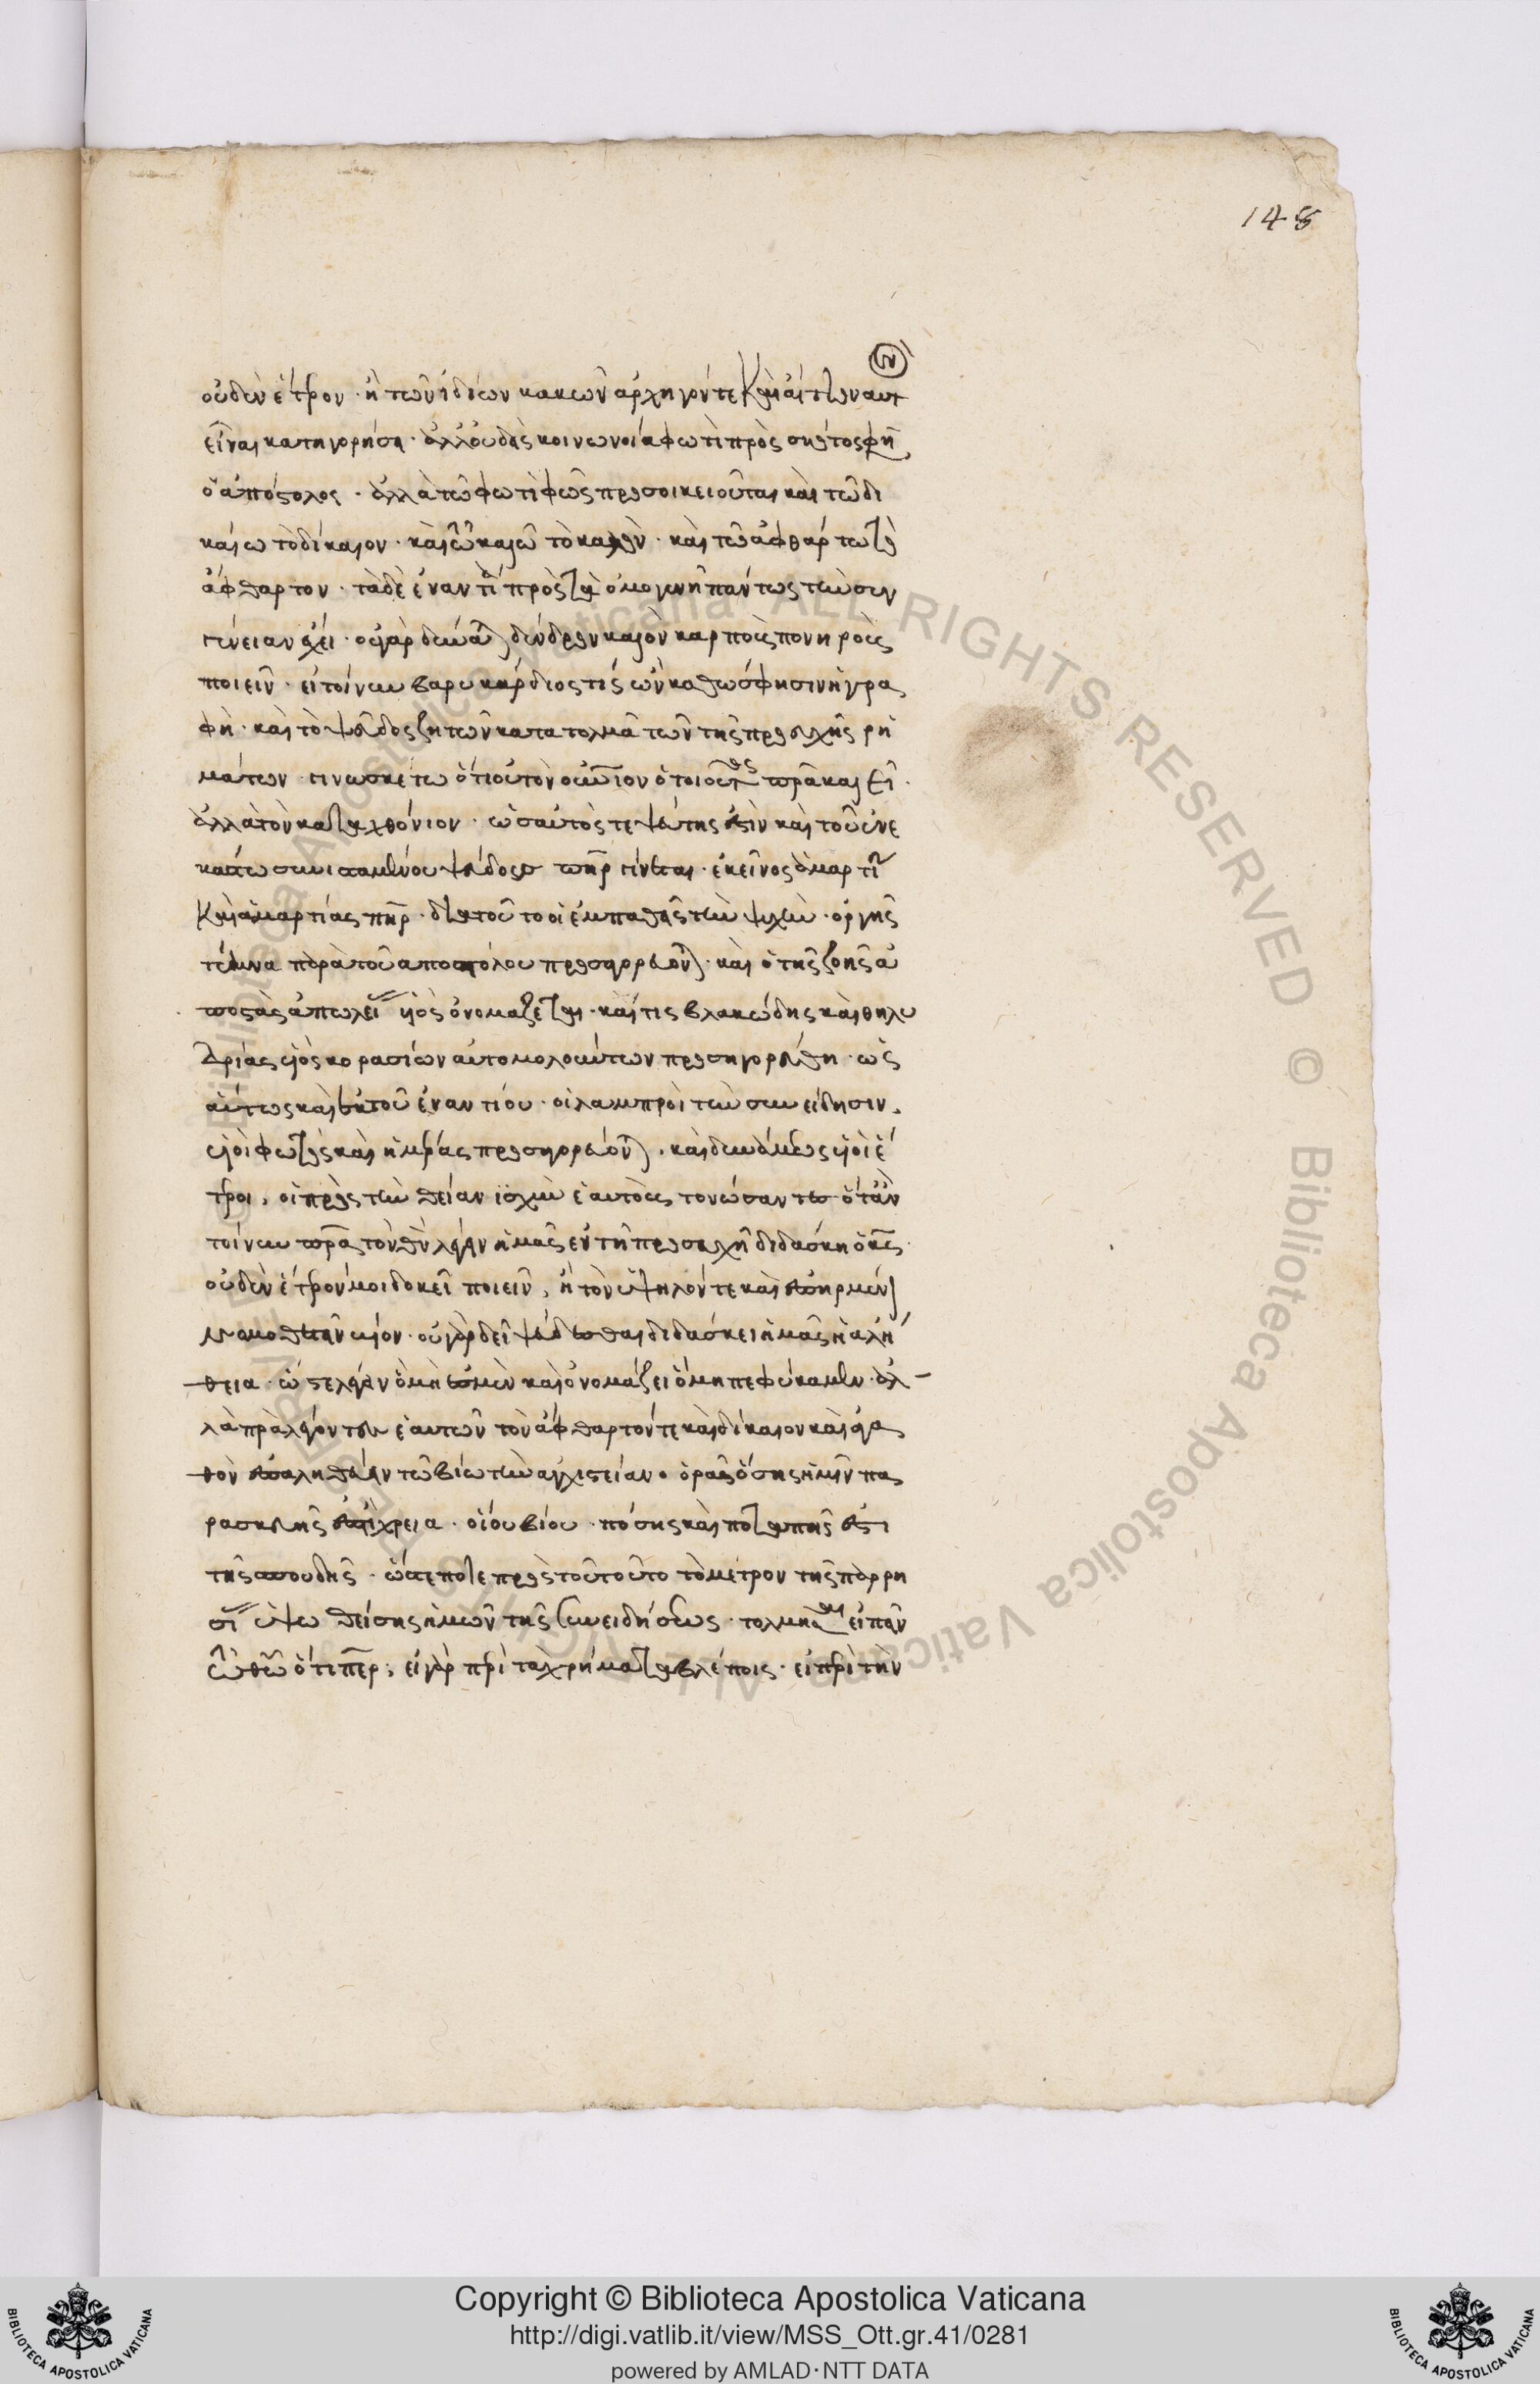 148
οὐδὲν ἕτερον · ἢ τῶν ἰδίων κακῶν ἀρχηγόν τε καὶ αἴτιον αὐτὸν
εἶναι κατηγορήσει · ἀλλ' οὐδεὶς κοινωνία φωτὶ πρὸς σκότος φησὶν
ὁ ἀπόστολος · ἀλλὰ τῶ φωτὶ φῶς προσοικειοῦται καὶ τῶ δι
καίω τὸ δίκαιον · καὶ τῶ καλῶ τὸ καλὸν · καὶ τῶ ἀφθάρτω τὸ
ἄφθαρτον · τὰ δὲ ἐναντία πρὸς τὰ ὁμογενῆ πάντως τὴν συγ
γένειαν ἔχει · οὐ γὰρ δύναται δένδρον καλὸν καρποὺς πονηροὺς
ποιεῖν · εἰ τοίνυν βαρυκάρδιος τίς ὢν καθώς φησιν ἡ γρα
φὴ · καὶ τὸ ψεῦδος ζητῶν κατατολμᾶ τῶν τῆς προσευχῆς ῥη
μάτων · γινωσκέτω ὅτι οὐ τὸν οὐράνιον ὁ τοιοῦτος πατέρα καλεῖ ·
ἀλλὰ τὸν καταχθόνιον · ὡς αὐτός τε ψεύστης ἐστὶν καὶ τοῦ ἐν ἑ
κάστω συνισταμένου ψεύδους πατὴρ γίνεται · ἐκεῖνος ἁμαρτία
καὶ ἁμαρτίας πατὴρ · διὰ τοῦτο οἱ ἐμπαθεῖς τὴν ψυχὴν · ὀργῆς
τέκνα παρὰ τοῦ ἀποστόλου προσαγορεύονται · καὶ ὁ τῆς ζωῆς ἀ
ποστὰς ἀπωλείας υἱὸς ὀνομάζεται · καί τις βλακώδης καὶ θηλυ
δρίας υἱὸς κορασίων αὐτομολούντων προσηγορεύθη · ὡς
αύτως καὶ ἐκ τοῦ ἐναντίου · οἱ λαμπροὶ τὴν συνείδησιν,
υἱοὶ φωτὸς καὶ ἡμέρας προσαγορεύονται, καὶ δυνάμεως υἱοὶ ἕ
τεροι, οἱ πρὸς τὴν θείαν ἰσχὺν ἑαυτοὺς τονώσαντες ὅταν
τοίνυν πατέρα τὸν θεὸν λέγειν ἡμᾶς ἐν τῆ προσευχῆ διδάσκη ὁ κύριος
οὐδὲν ἕτερόν μοι δοκεῖ ποιεῖν, ἢ τὸν ὑψηλόν τε καὶ ἐπηρμένον
νομοθετεῖν βίον · οὐ γὰρ δεῖ ψεύδεσθαι διδάσκει ἡμᾶς ἡ ἀλή
θεια · ὥστε λέγειν ὃ μή ἐσμεν καὶ ὀνομάζει ὃ μὴ πεφύκαμεν · ἀλ
λὰ πατέρα λέγοντες ἑαυτῶν τὸν ἄφθαρτόν τε καὶ δίκαιον καὶ ἀγα
θὸν ἐπαληθεύειν τῶ βίω τὴν ἀγχιστείαν · ὁρᾶς ὅσης ἡμῖν πα
ρασκευῆς ἐστι χρεία · οἵου βίου · πόσης καὶ ποταπῆς ἐστι
τῆς σπουδῆς · ὥστε ποτε πρὸς τοῦτο τοῦτο τὸ μέτρον τῆς παρρη
σίας ὑψωθείσης ἡμῶν τῆς συνειδήσεως · τολμῆσαι εἰπεῖν
τῶ θεῶ ὅτι πάτερ, εἰ γὰρ περὶ τὰ χρήματα βλέποις · εἰ περὶ τὴν
Copyright © Biblioteca Apostolica Vaticana
http://digi.vatlib.it/view/MSS_Ott.gr.41/0281
powered by AMLAD·NTT DATA